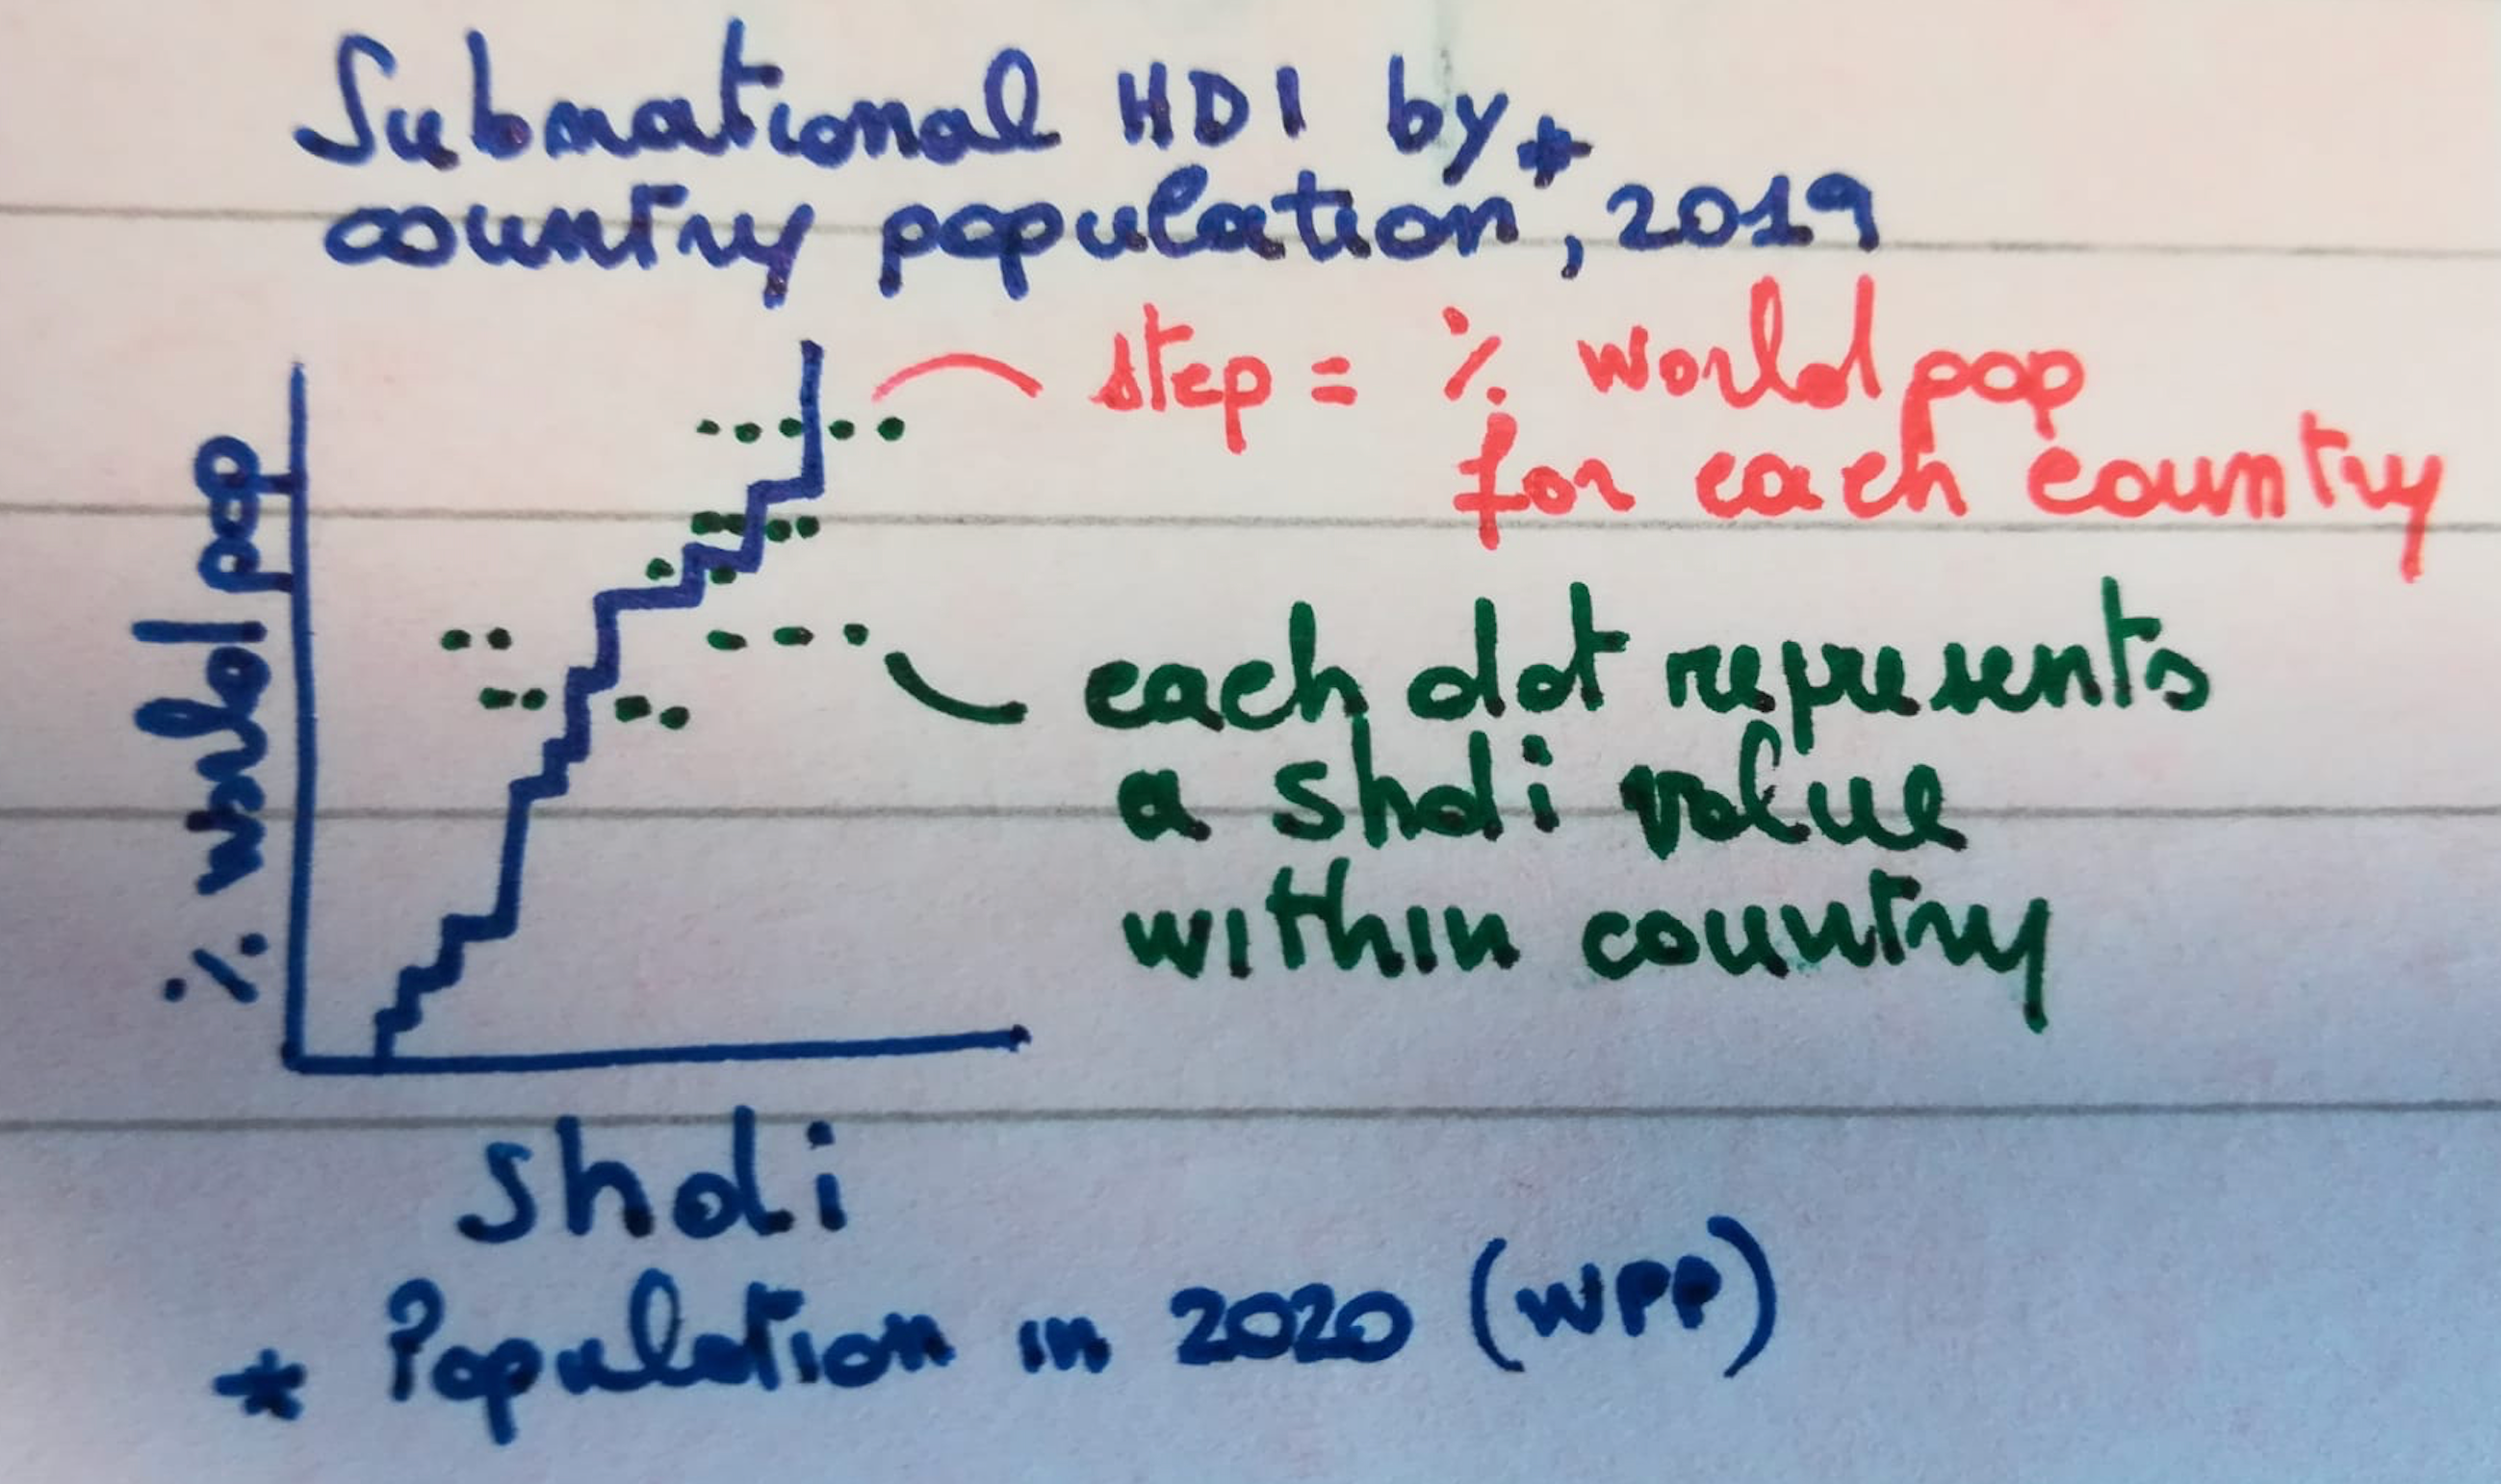 Subnational HDI by
country population*, 2019
step = % world pop
for each country
% world pop
each dot represents
a shdi value
within country
shdi
* Population in 2020 (WPP)